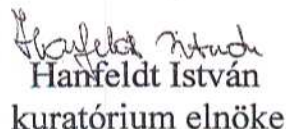 Hanfeldt István
Hanfeldt István
kuratórium elnöke